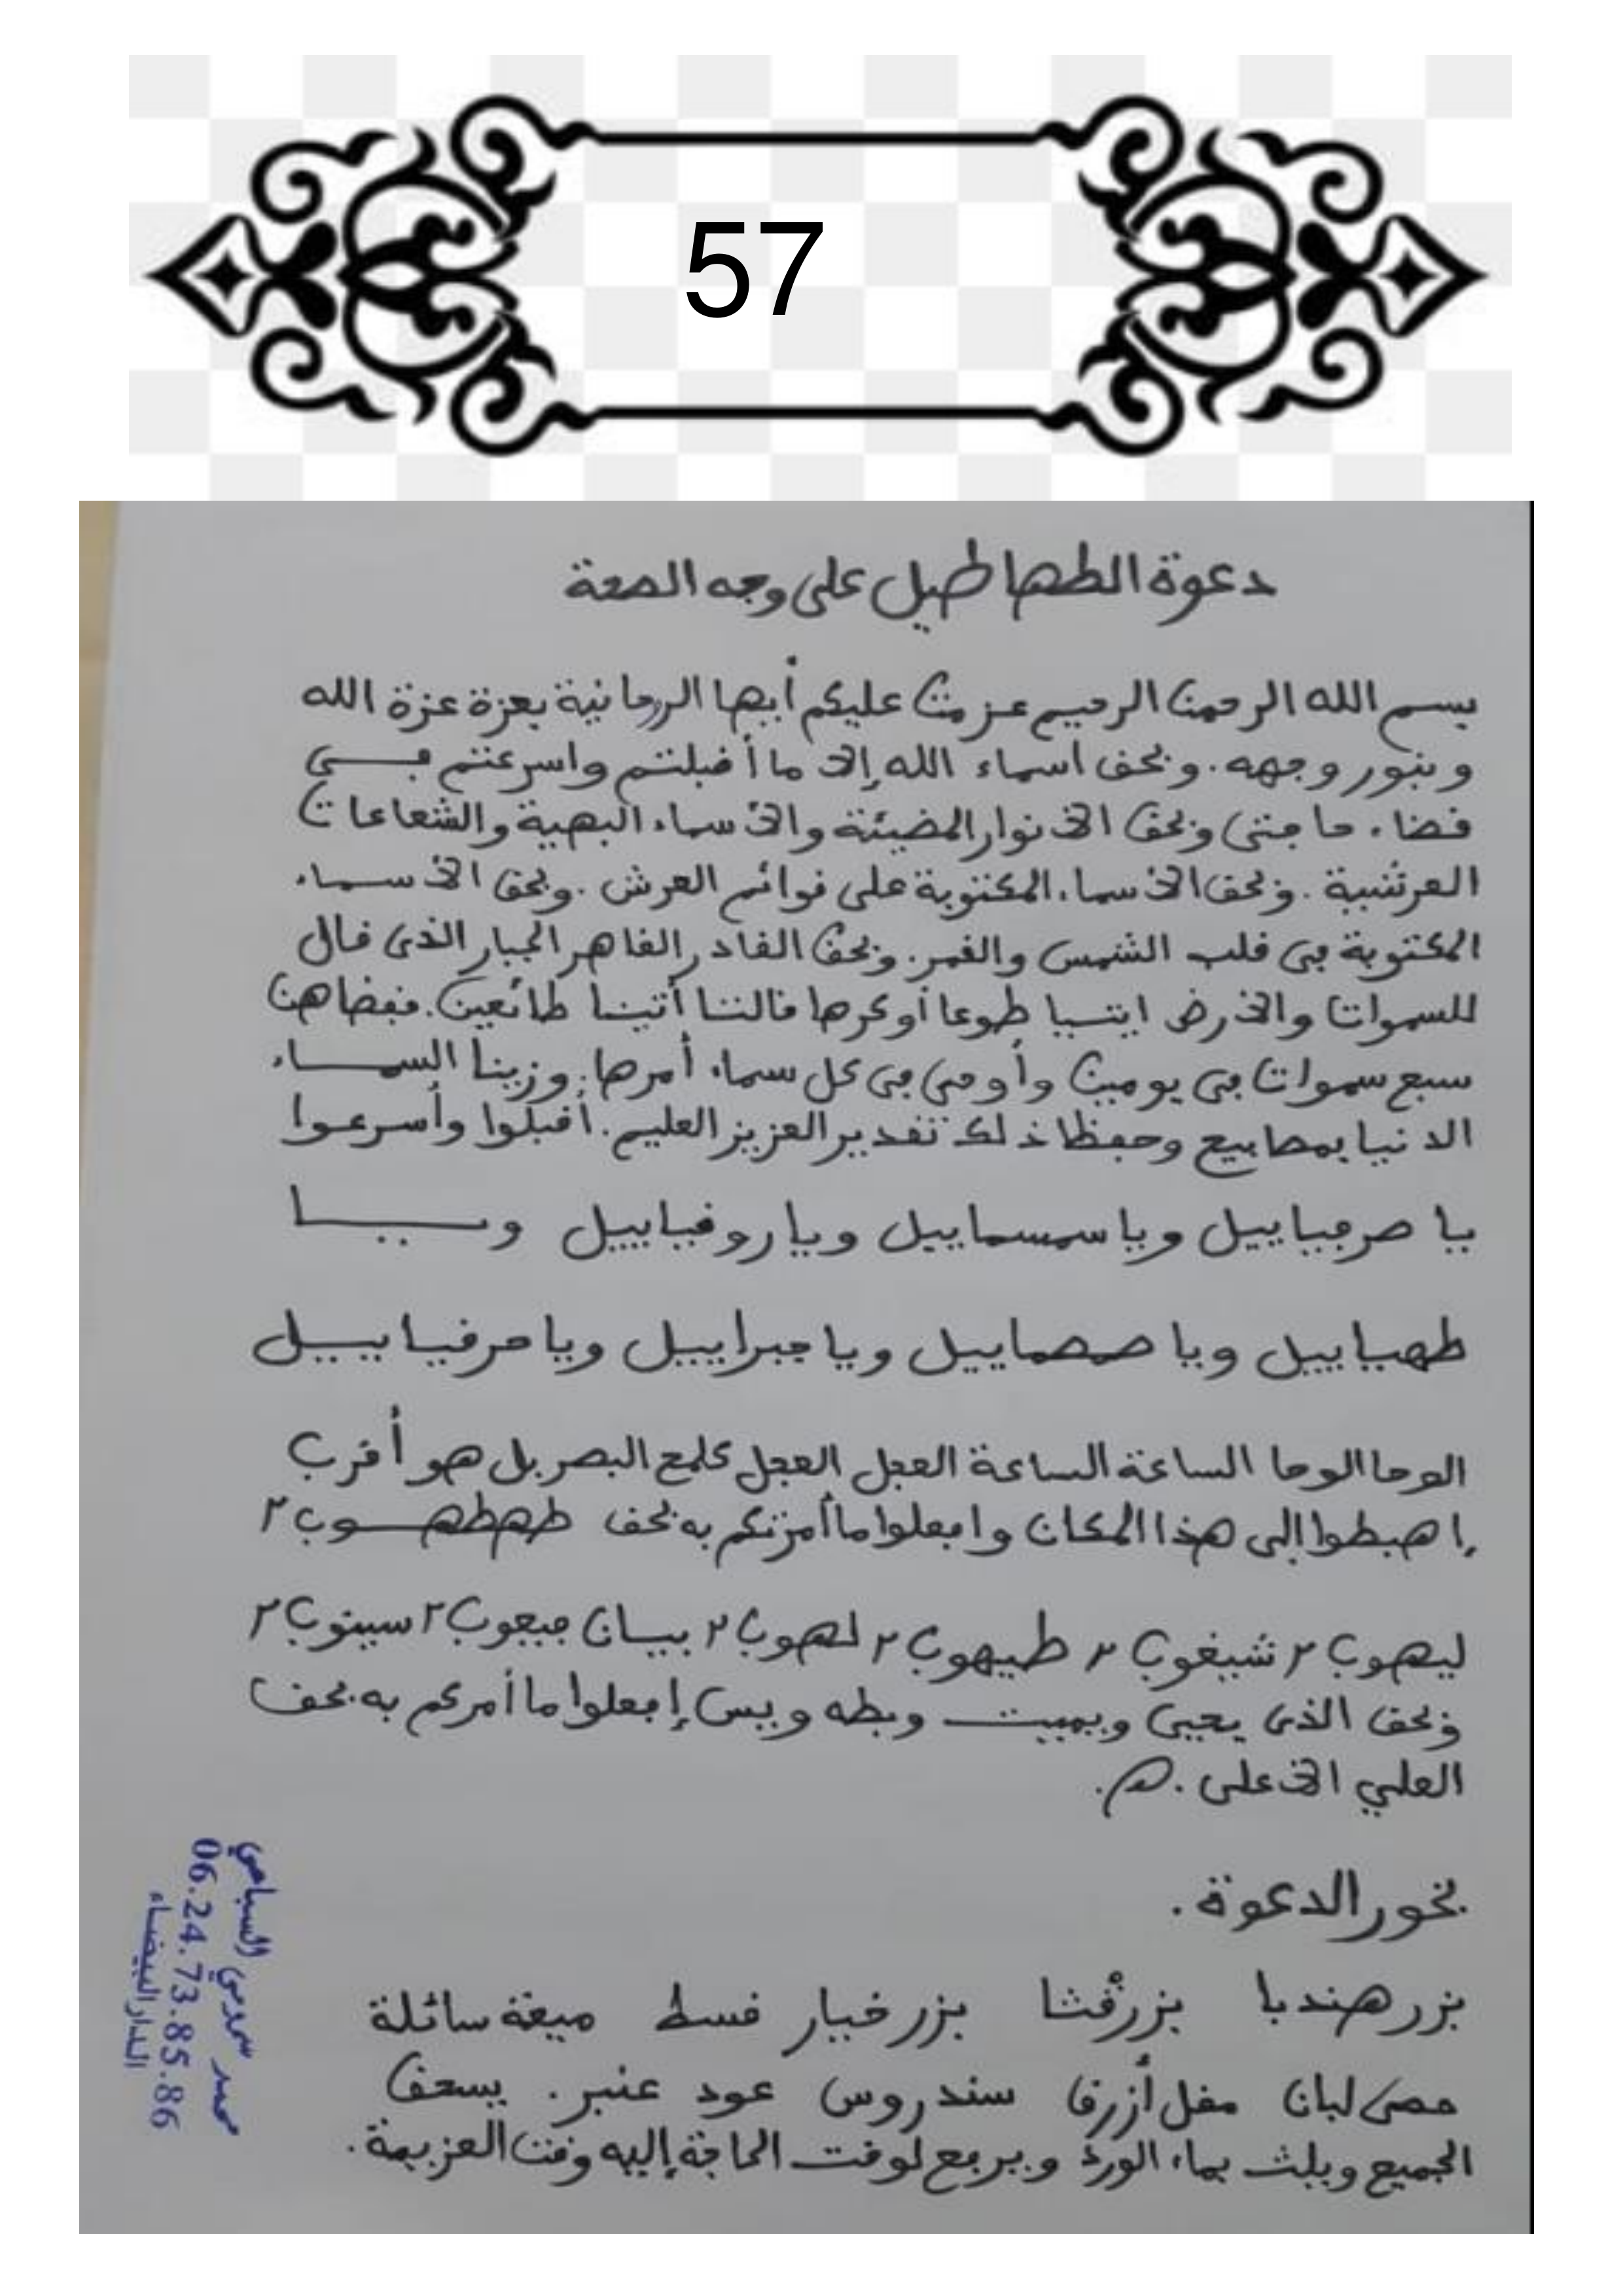 57
دعوة الطهاطيل على وجه الصحة
بسم الله الرحمن الرحيم عزمت عليكم أيها الروحانية بعزة عزة الله
وبنور وجهه. وبحق اسماء الله إلا ما أقبلتم واسرعتم في
قضاء حاجتي وبحق الأنوار المضيئة والأسماء البهية والشعاعات
العرشية. وبحق الأسماء المكتوبة على قوائم العرش. وبحق الأسماء
المكتوبة في قلب الشمس والقمر. وبحق القادر القاهر الجبار الذي قال
للسموات والأرض ايتيا طوعا أو كرها قالتا أتينا طائعين. فقضاهن
سبع سموات في يومين وأوحى في كل سماء أمرها. وزينا السماء
الدنيا بمصابيح وحفظا ذلك تقدير العزيز العليم. أقبلوا وأسرعوا
يا صرفياييل ويا سمسماييل ويا روقياييل ويا
طهياييل ويا صصماييل ويا جبراييل ويا حرفياييل
الوحا الوحا الساعة الساعة العجل العجل كلمح البصر بل هو أقرب
إهبطوا إلى هذا المكان وافعلوا ما أمرتكم به بحق طهطهوب ٢
ليهوب ٢ شيغوب ٢ طيهوب ٢ لهوب ٢ بيسان فيعوب ٢ سينوب ٢
وبحق الذي يحيي ويميت وبطه ويس إفعلوا ما أمركم به بحق
العلي الأعلى .
بخور الدعوة .
بزر هندبا بزر قثا بزر خيار قسط ميعة سائلة
حصى لبان مقل أزرق سندروس عود عنبر . يسحق
الجميع ويلث بماء الورد ويرفع لوقت الحاجة إليه وقت العزيمة .
محمد سمومي السباعي
06.24.73.85.86
الدار البيضاء